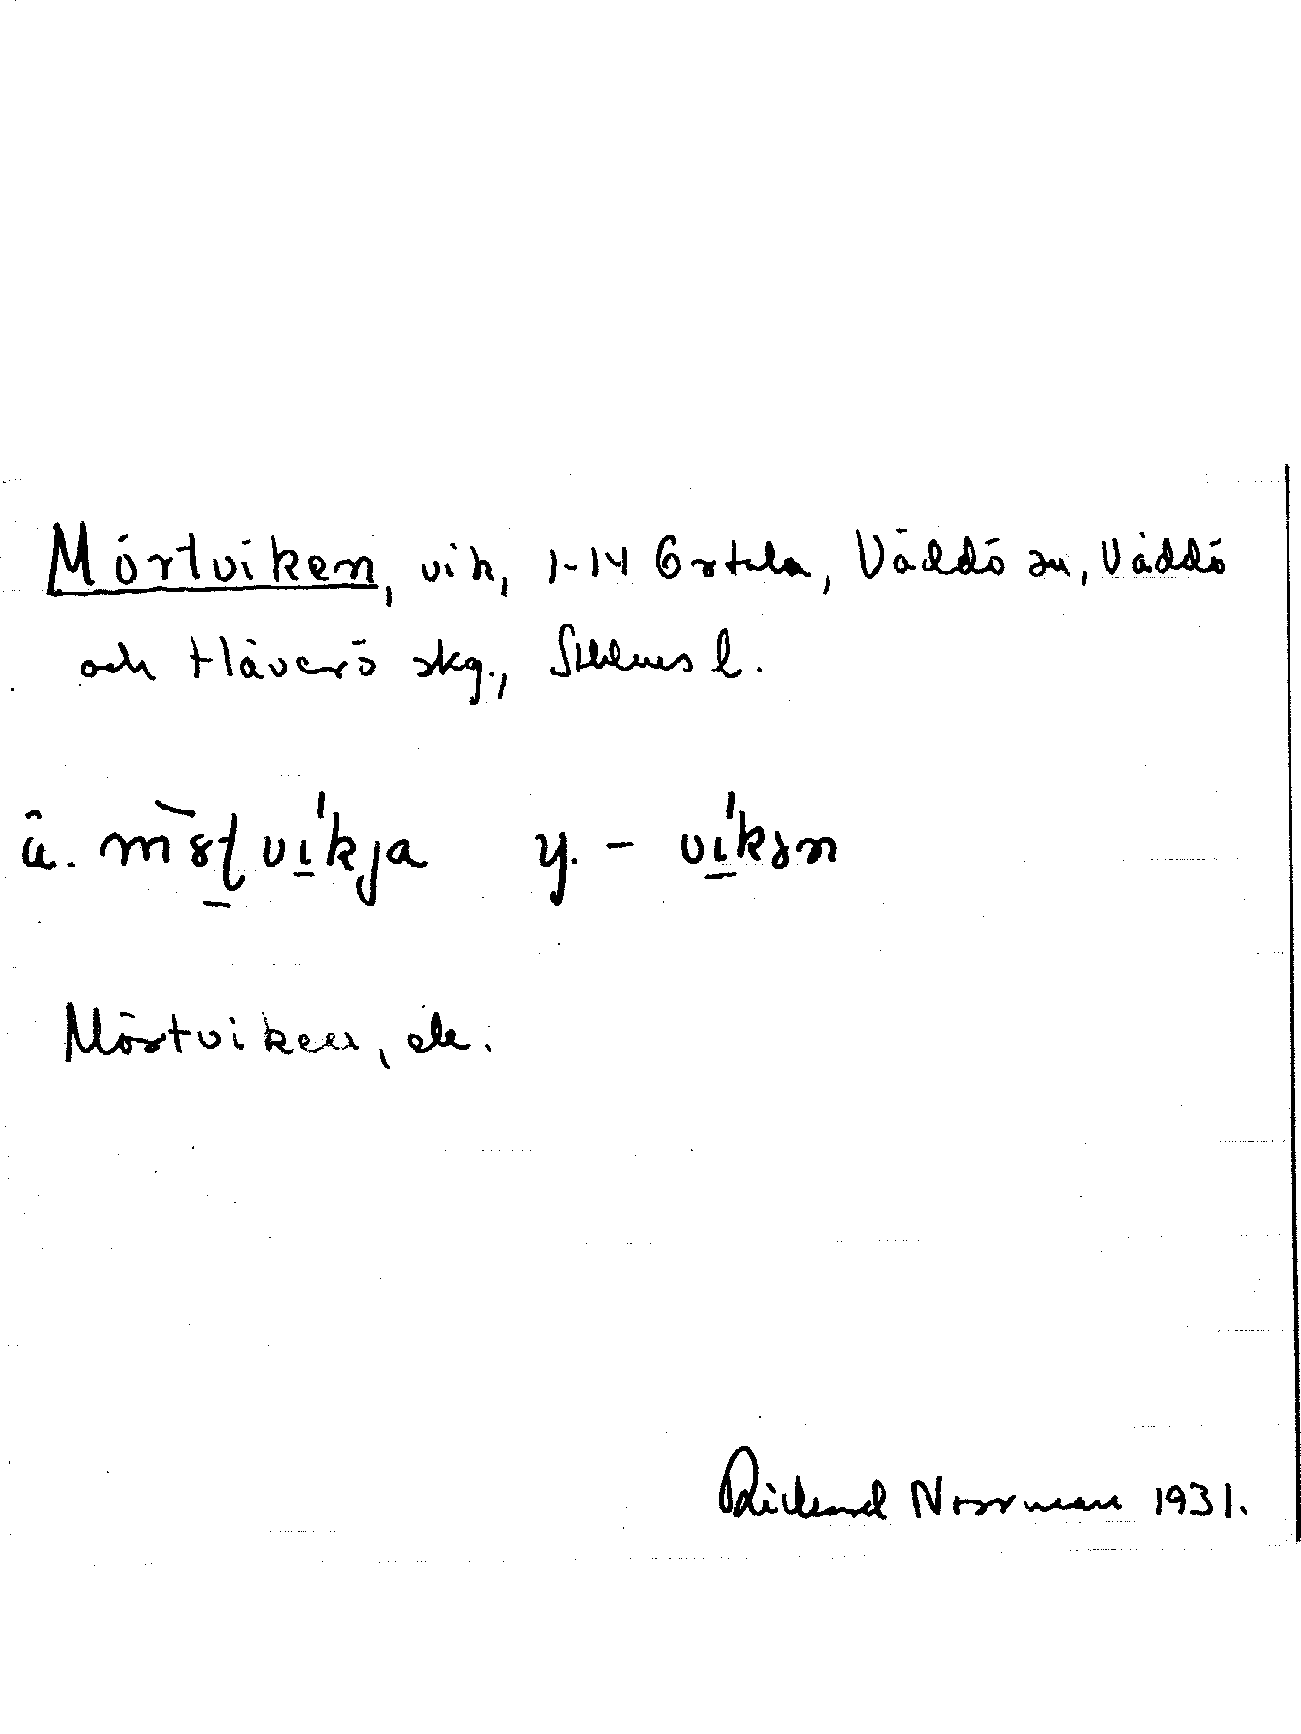 Mörtviken, vik, 1-14 Ortala, Väddö sn, Väddö
och Häverö skg., Sthlms l.
ä. y. -
Mörtviken, ek.
Rickard Norrman 1931.